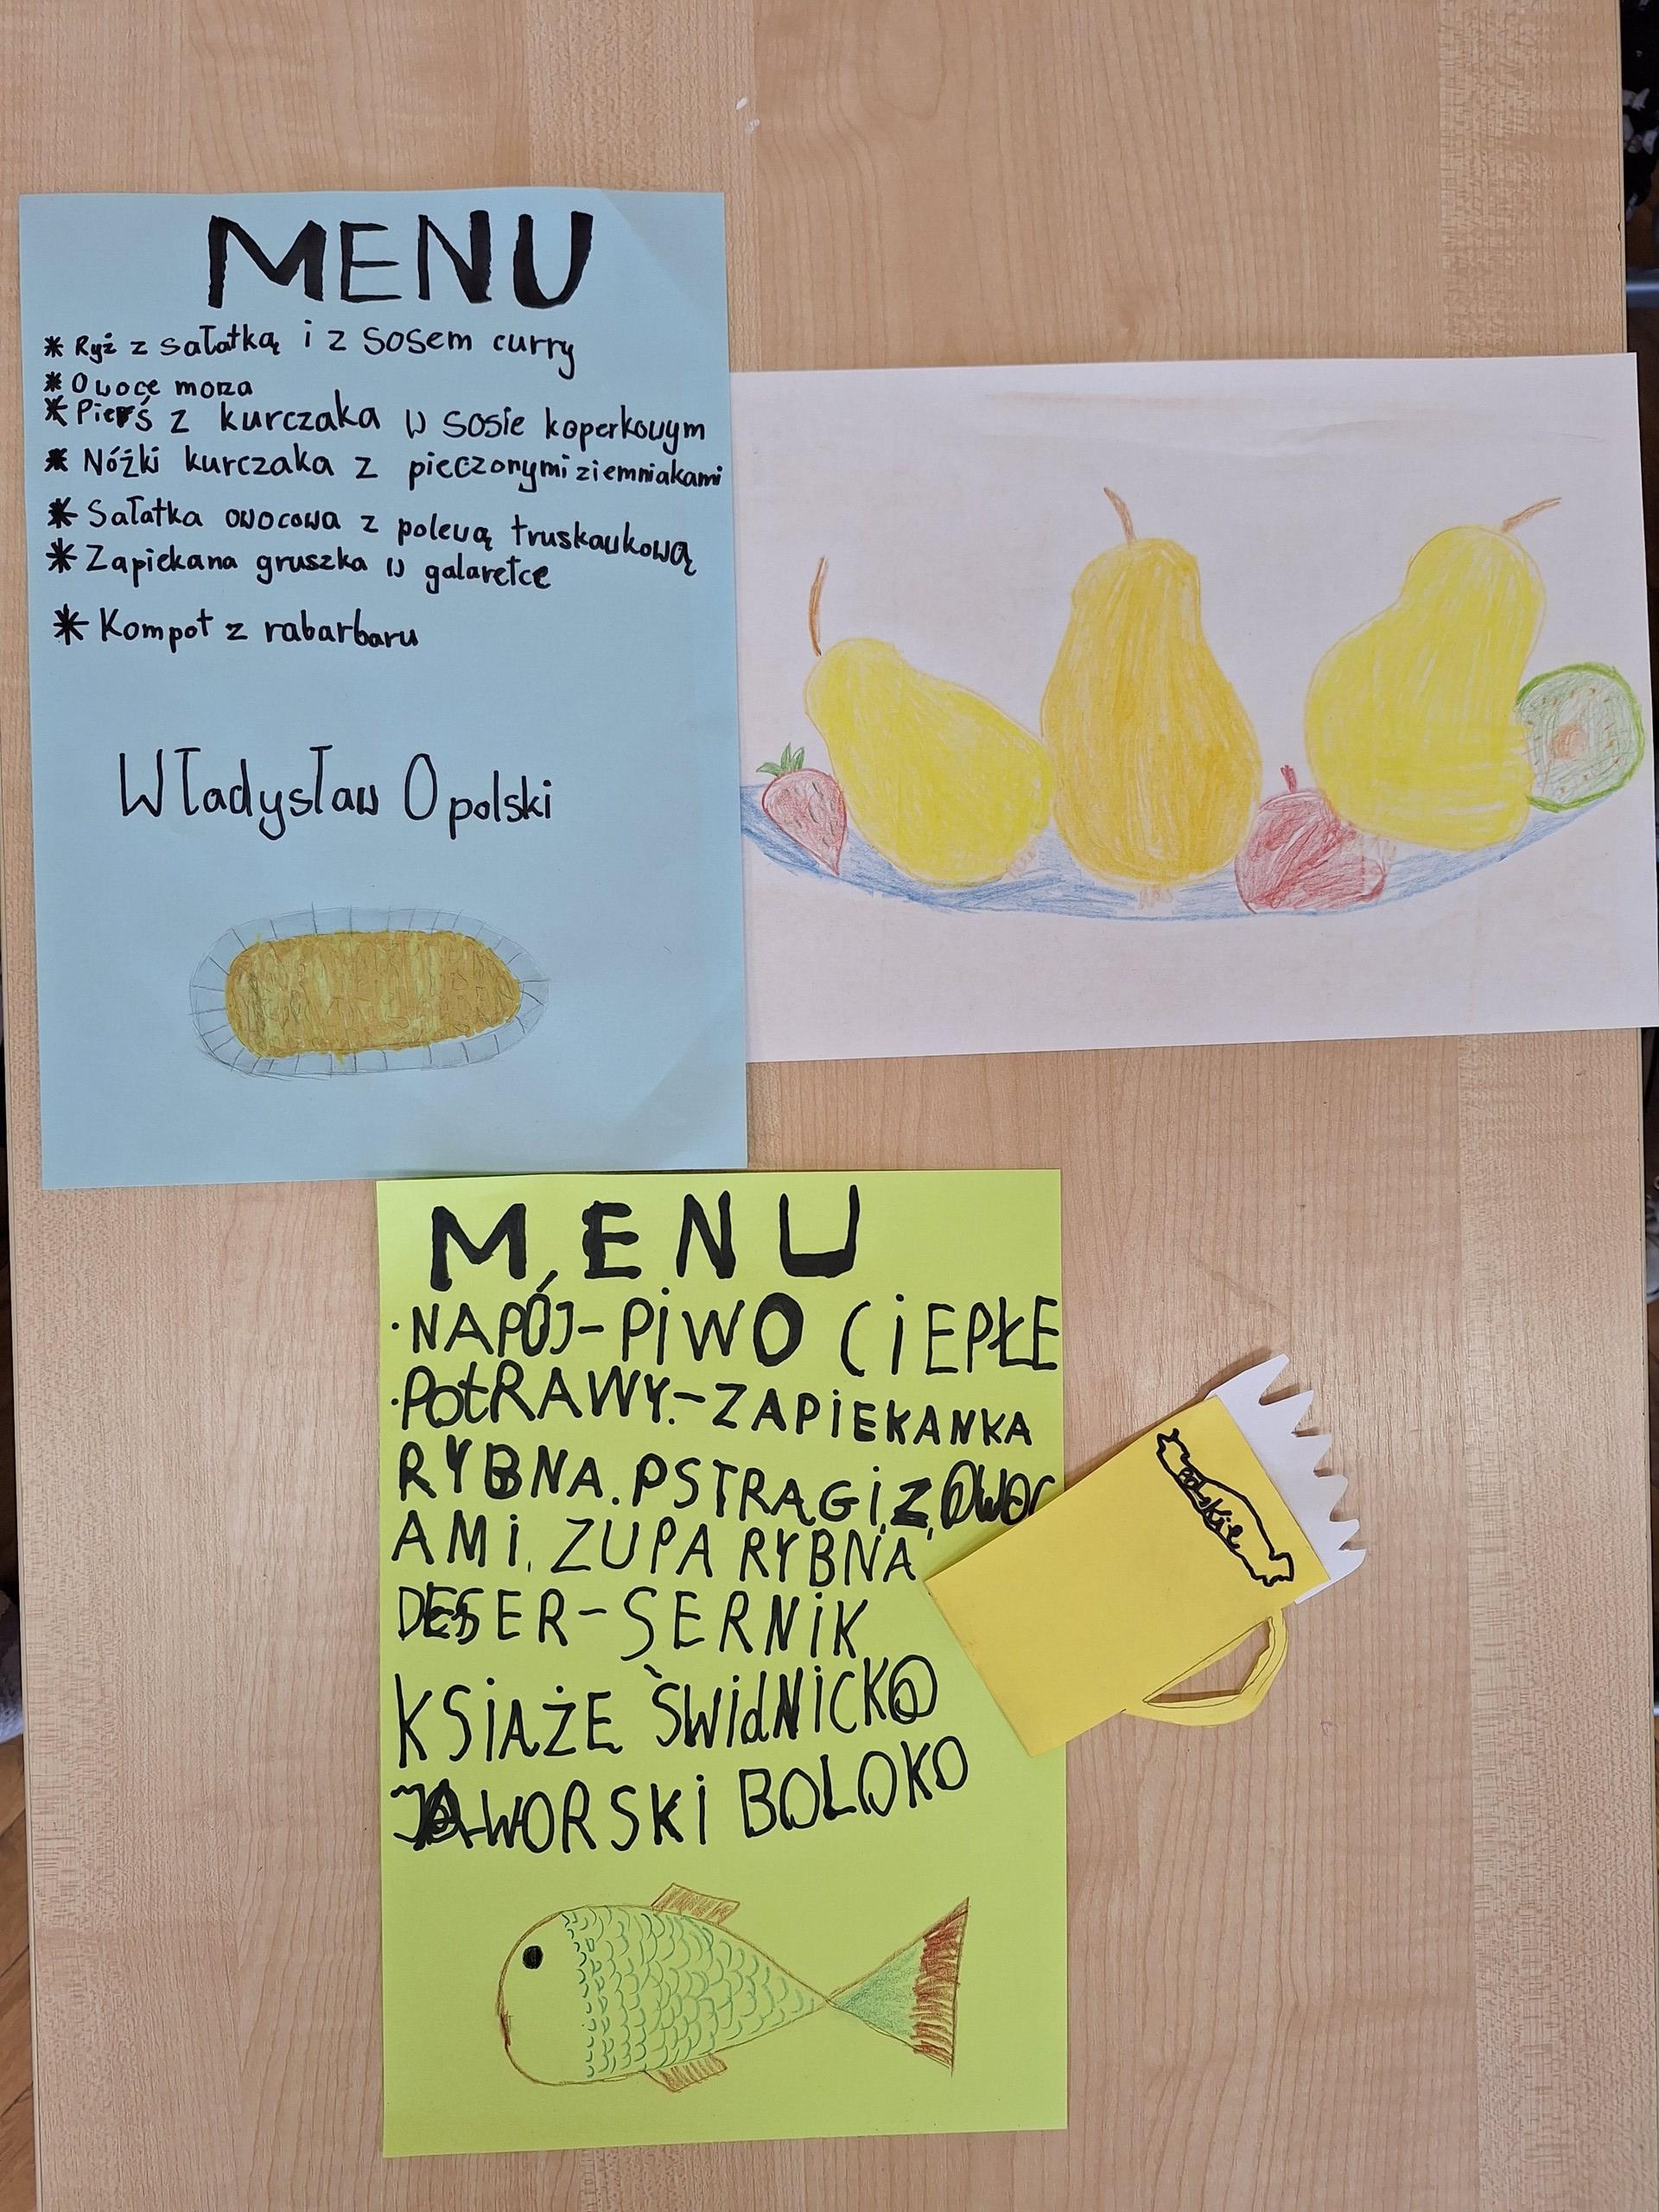 MENU
* Ryż z sałatką i z sosem curry
* Owoce moza
* Pierś z kurczaka w sosie koperkowym
* Nóżki kurczaka z pieczonymi ziemniakami
* Sałatka owocowa z polewą truskawkową
* Zapiekana gruszka w galaretce
* Kompot z rabarbaru
Władysław Opolski
MENU
·NAPÓJ-PIWO CIEPŁE
·POtRAWY.-ZAPIEKANKA
RYBNA. PSTRĄGI.Z.OWOC
AMI. ZUPA RYBNA
DESER-SERNIK
KSIĄŻE ŚWIdNICKO
JAWORSKI BOLOKO
POLSKIE